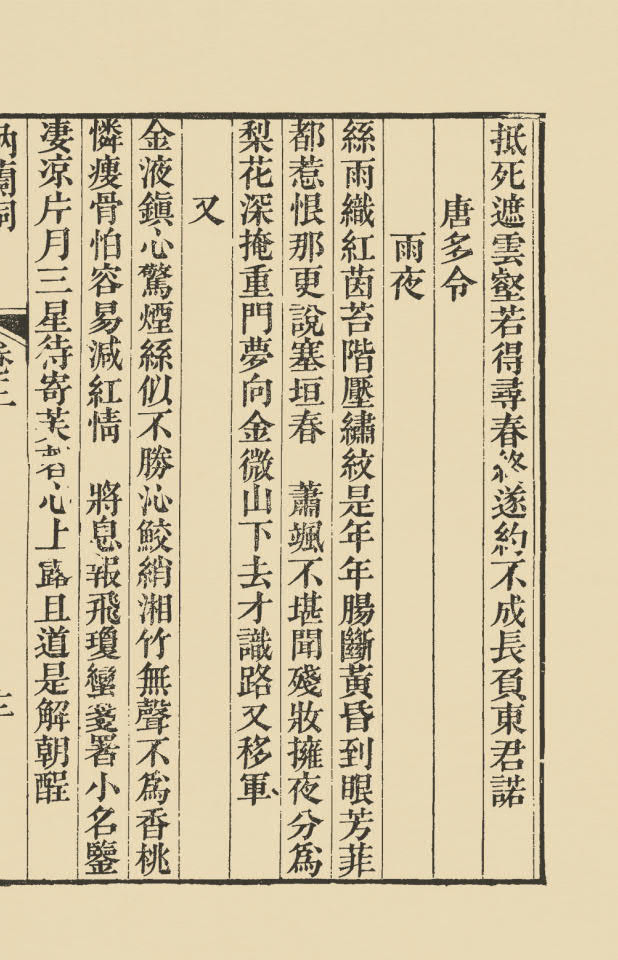 抵死遮雲壑若得尋春終遂約不成長負東君諾
唐多令
雨夜
絲雨織紅茵苔階壓繡紋是年年腸斷黃昏到眼芳菲
都惹恨那更說塞垣春　蕭颯不堪聞殘妝擁夜分為
梨花深掩重門夢向金微山下去才識路又移軍
又
金液鎮心驚煙絲似不勝沁鮫綃湘竹無聲不為香桃
憐瘦骨怕容易減紅情　將息報飛瓊蠻箋署小名鑒
淒涼片月三星待寄芙蓉心上露且道是解朝酲
納蘭詞
卷三